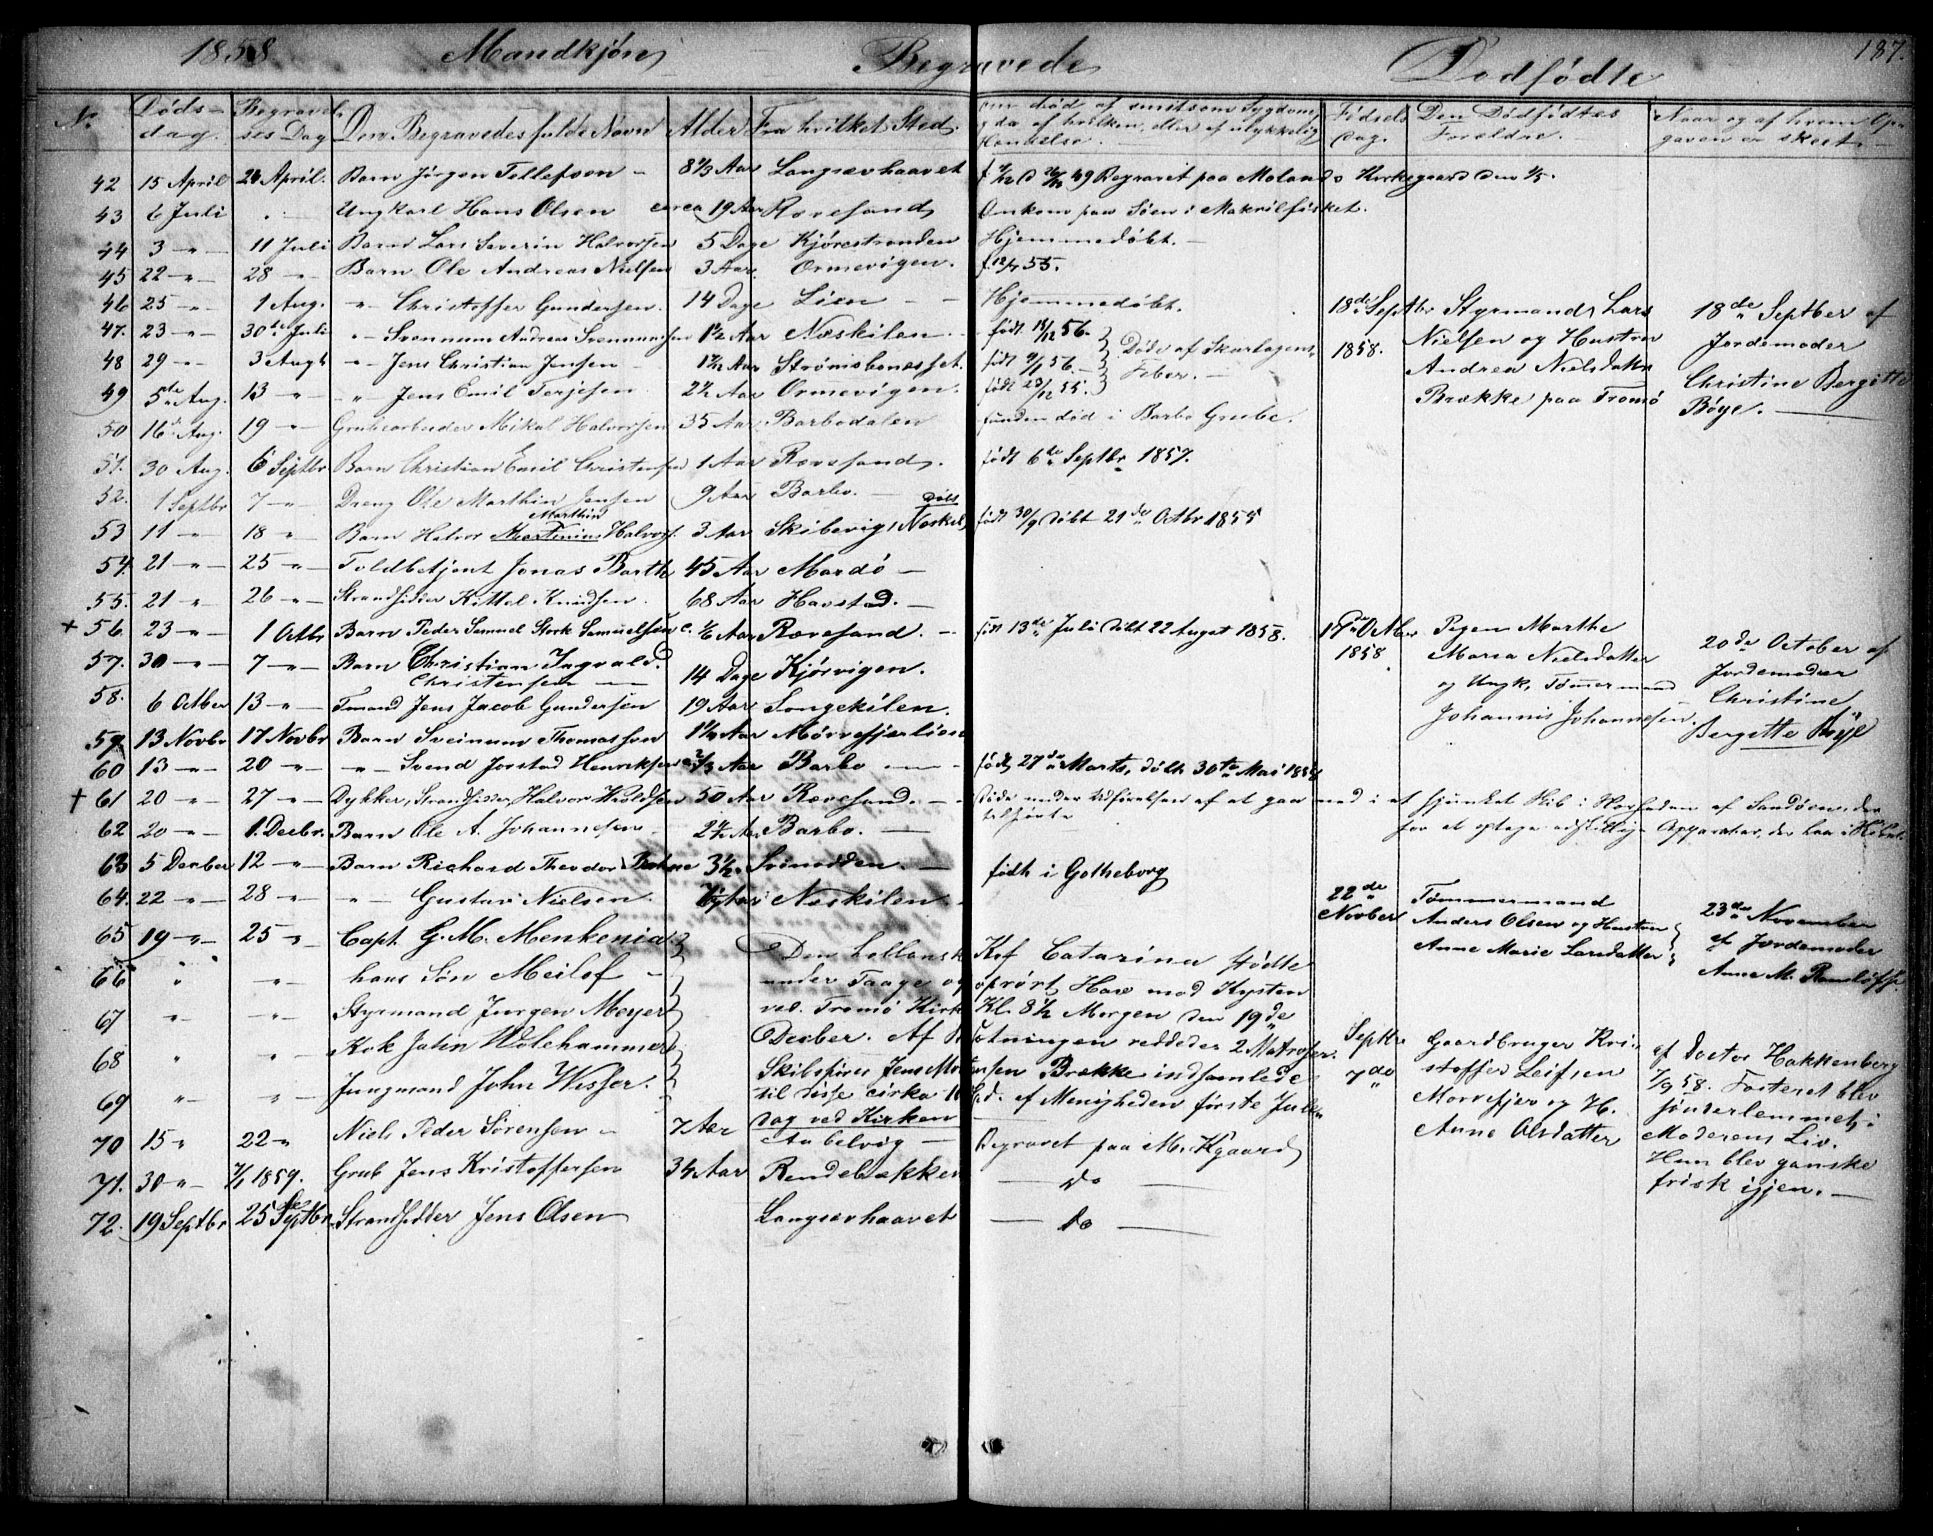 1858 Mandkjøn Begravede Dødfødte 187.
No. Døds-dag. Begravelses Dag Den Begravedes fulde Navn Alder Fra hvilket Sted. om død af smitsom Sygdom, og da af hvilken, eller af ulykkelig Hændelse. Fødsels Dag. Den Dødfødtes Forældre. Naar og af hvem Opgaven er skeet.
42 15 April 24 April. Barn Jörgen Tellefsen Aar Langsævhaavet Begravet paa Molands Kirkegaard den
43 6 Juli Ungkarl Hans Olsen circa 19 Aar Rævesand Omkom paa Söen i Makrilfisket.
44 3 -"- 11 Juli Barn Lars Severin Halvorsen 5 Dage Kjörestranden Hjemmedöbt.
45 22 -"- 28 -"- Barn Ole Andreas Nielsen 3 Aar. Ormevigen. f. 12/7 55.
46 25 -"- 1 Aug. -"- Christoffer Gundersen. 14 Dage Lien Hjemmedöbt.
47. 23 -"- 30de Juli -"- Svennum Andreas Svennumsen 1½ Aar Næskilen födt 56.
48 29 -"- 3 Augt -"- Jens Christian Jensen Aar Strömsbuneset. födt 56. Döde af Skarlagensfeber.
49 5te Aug. 13 -"- -"- Jens Emil Terjesen Aar Ormevigen. födt 23/12 55.
50 16de Aug. 19 -"- Grubearbeider Mikal Halvorsen 35 Aar Barbodalen funden död i Barbo Grube.
51. 30 Aug. 6 Septbr Barn Christian Emil Christensen 1 Aar Rævesand. födt 6te Septbr 1857.
52. 1 Septbr 7 -"- Dreng Ole Marthin Jensen 9 Aar Barbo.
53 11 -"- 18 -"- Barn Halvor Martinius Marthin Halvors. 3 Aar Skibevig, Næskil födt 30/9 döbt 21de Octbr 1855
54. 21 -"- 25 -"- Toldbetjent Jonas Barth 45 Aar Mardö
55. 21 -"- 26 -"- Strandsidder Kittel Knudsen. 68 Aar Havstad.
+ 56. 23 -"- 1 Octbr Barn Peder Samuel Stork Samuelsen c. 1/6 Aar Rævesand. födt 13de Juli döbt 22 August 1858.
57. 30 -"- 7 -"- Barn Christian Ingvald Christensen 14 Dage Kjörvigen.
58. 6 Octber 13 -"- Tmand Jens Jacob Gundersen 19 Aar Songekilen.
59 13 Novbr 17 Novbr Barn Sveinum Thomassen Aar Mörrefjærlien
60 13 -"- 20 -"- -"- Svend Jorstad Henriksen 2/3 Aar Barbo födt 27de Marts, döbt 30te Mai 1858
† 61 20 -"- 27 -"- Dykker, Strandsidder, Halvor Haldsen 50 Aar Rævesand. Döde under Udförelsen af at gaa ned i et sjunket Skib i Havneden af Sandöen, der tilförte
for at optage adskillige Apparater, der laa i
62 20 -"- 1. Decbr. Barn Ole A. Johannesen 2½ Aar Barbo.
63 5 Decber 12 -"- Barn Richard Theodor 3½. Svinodden. födt i Gotheborg
64. 22 -"- 28 -"- -"- Gustav Nielsen. Aar Næskilen.
65 19 -"- 25 -"- Capt. G. M. Menkenia.
66 " -"- hans Sön Meilof
67 -"- -"- Styrmand Jurgen Meyer
68 " " Kok John Wolehammer
69 -"- -"- Jungmand John Wisser.
Den hollansk Kof Catarina stödte
under Taage og oprört Hav mod Kysten
ved Tromö Kirke Kl. 8½ Morgen den 19de
Decber. Af Besætningen reddedes 2 Matroser.
Skibsförer Jens Mortensen Brække indsamlede
til disse cirka Spd. af Menigheden förste Jule
dag ved Kirken
70 15 " 22 " Niels Peder Sörensen 7 Aar Aabelvig Begravet paa M. Kgaard
71. 30 -"- 1859. Grub Jens Kristoffersen 3¼ Aar Rendebækken do
72. 19 Septbr 25de Septbr Strandsidder Jens Olsen Langsævhaavet do
18de Septbr 1858. Styrmand Lars Nielsen og Hustru Andrea Nielsdatter Brække paa Tromö
18de Septber af Jordemoder Christine Bergitte Böye.
17de Octber 1858 Pigen Marthe Maria Nielsdatter og Ungk. Tömmermand Johannis Johannesen.
20de October af Jordemoder Christine Bergitte Böye
22de Novber Tömmermand Anders Olsen og Hustru Anne Marie Larsdatter
23de November af Jordemoder Anne M.
Septbr 7de Gaardbruger Kristoffer Leifsen Morrefjær og H. Anne Olsdatter
af Doctor Hakkenberg 7/9 58. Fosteret blev sönderlemmet i Moderens Liv. Hun blev ganske frisk igjen.